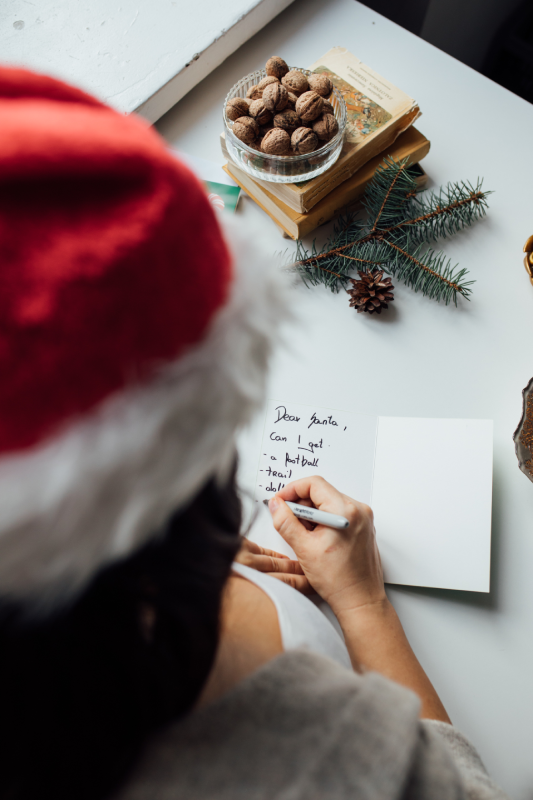 Dear Santa,
Can I get
- a football
- trail
- doll